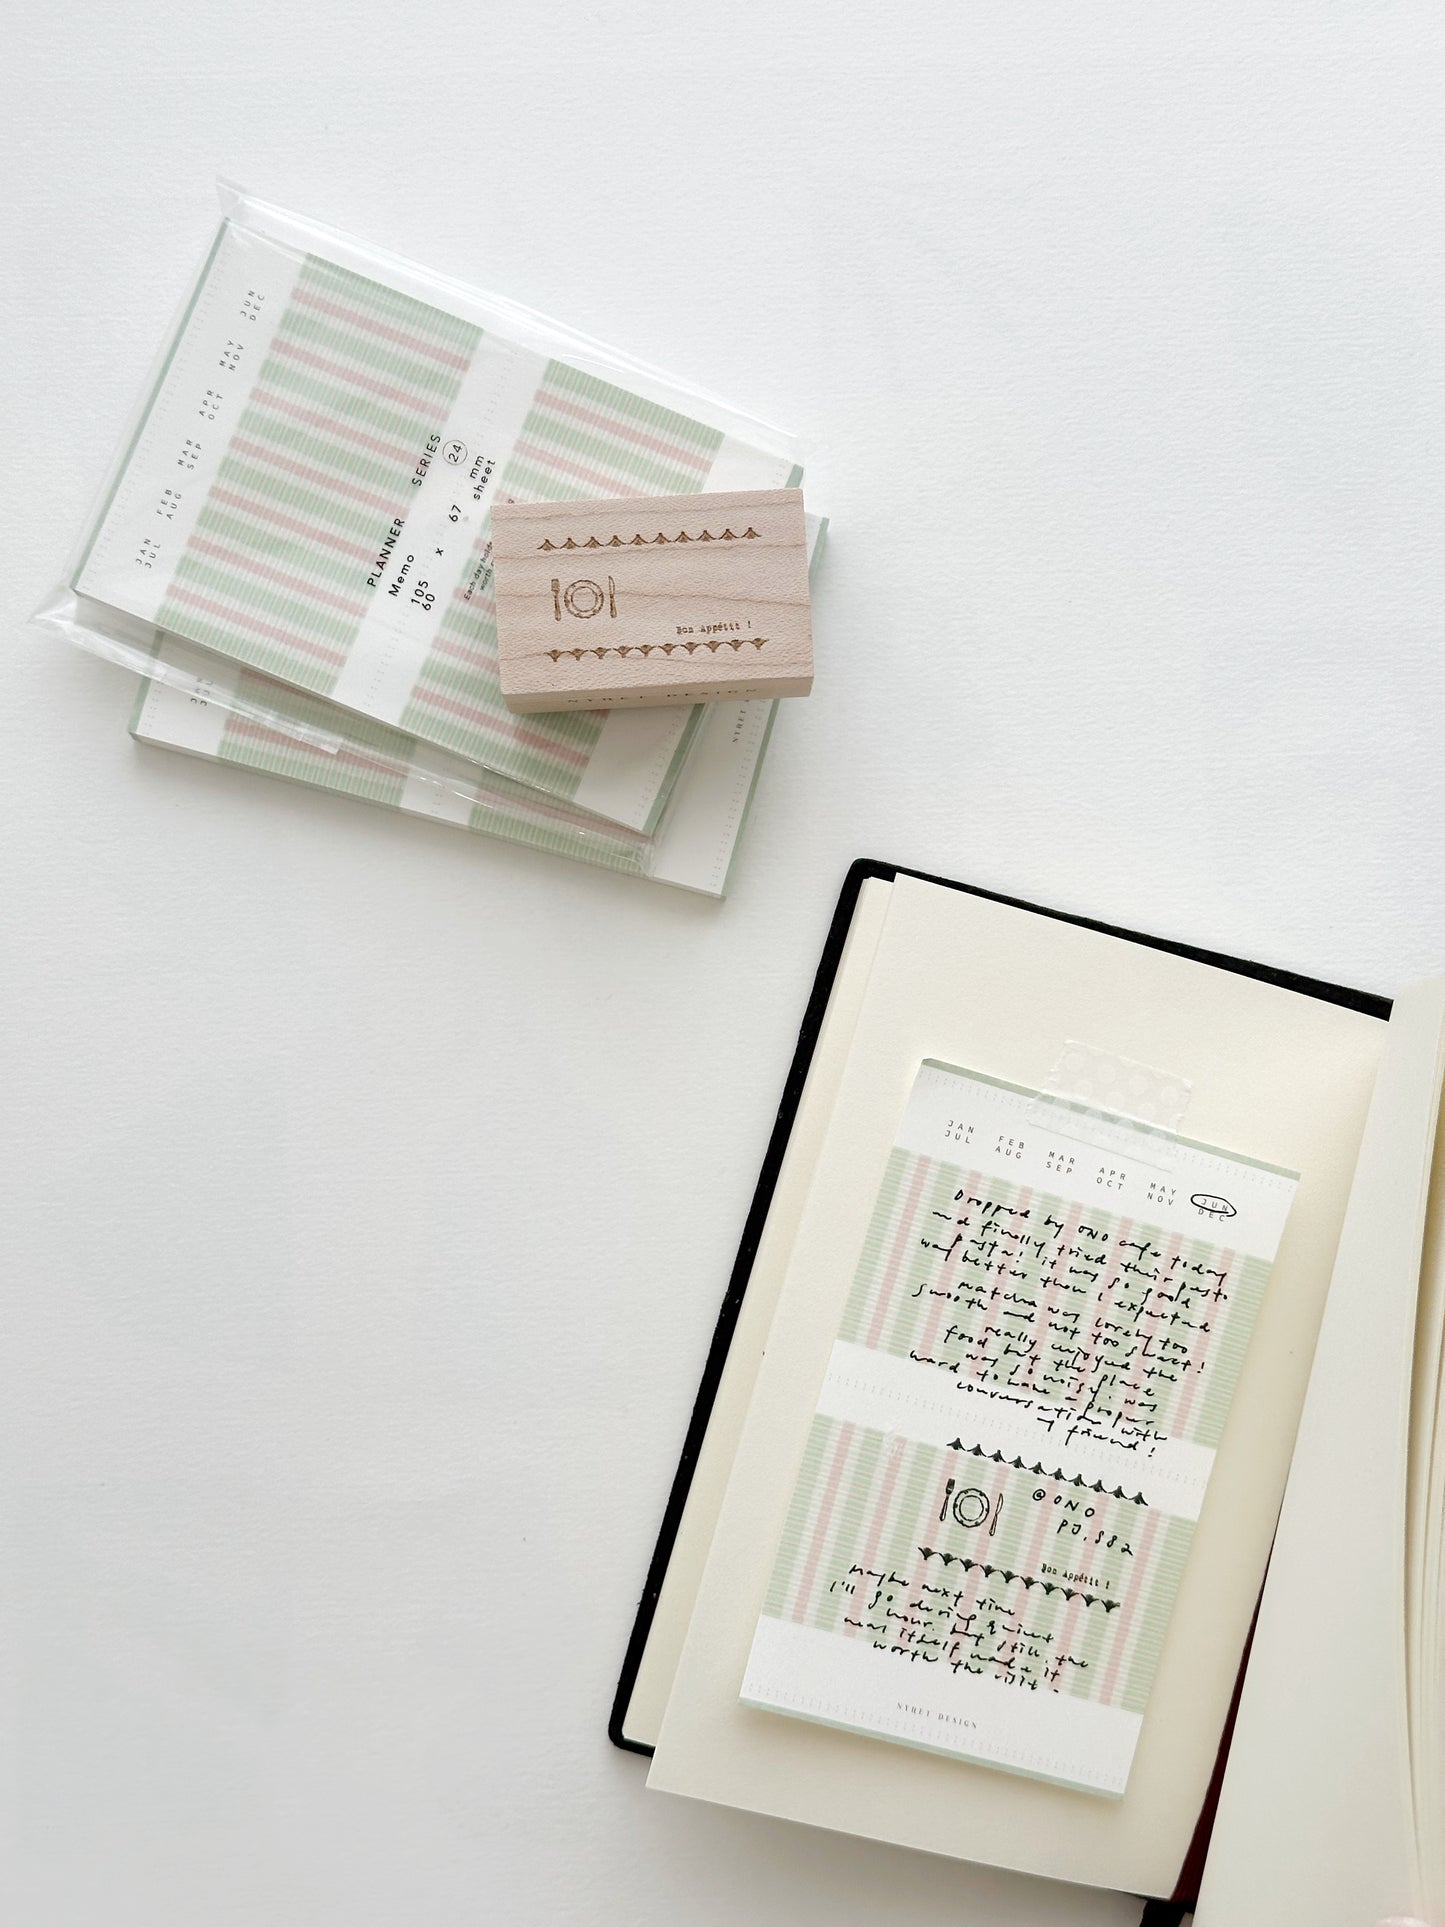 JAN FEB MAR APR MAY JUN
JUL AUG SEP OCT NOV DEC
PLANNER SERIES 24
Memo
105 x 67 mm
60 sheet
Each day holds
worth
Bon Appétit !
NYRET DESIGN
JAN
JUL
NYRET
JAN FEB MAR APR MAY JUN
JUL AUG SEP OCT NOV DEC
Dropped by ONO cafe today
and finally tried their pesto
pasta! it was so good
way better than i expected
matcha was lovely too
smooth and not too sweet!
really enjoyed the
food but the place
was so noisy. was
hard to have a proper
conversation with
my friend!
@ONO
PJ, SS2
Bon Appétit !
Maybe next time
I'll go during quiet
hour. but still, the
meal itself made it
worth the visit -
NYRET DESIGN